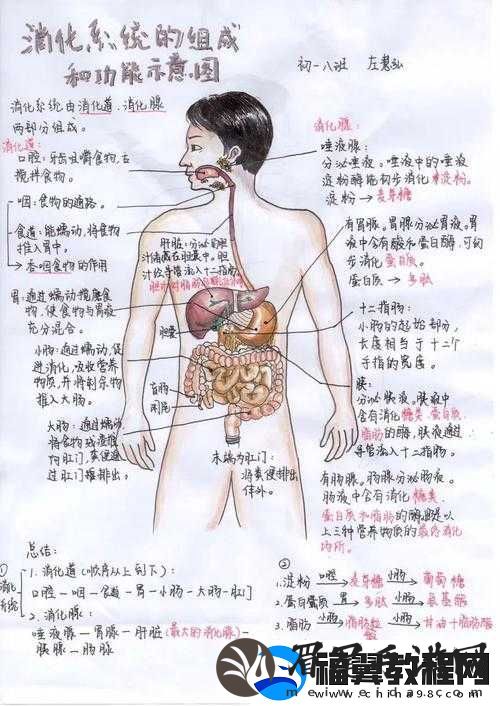 消化系统的组成
和功能示意图
初一八班
消化系统由消化道、消化腺
两部分组成。
消化道:
口腔:牙齿咀嚼食物,舌
搅拌食物。
咽:食物的通路。
食道:能蠕动,将食物
推入胃中。
胃:通过蠕动搅磨食
物,使食物与胃液
充分混合。
小肠:通过蠕动,促
进消化,吸收营养
物质,并将剩余物
推入大肠。
大肠:通过蠕动
将食物残渣推
向肛门,
肝脏:分泌的胆
汁储藏在胆囊中。胆
汁经导管流入十二指肠
胆囊
盲肠
阑尾
末端为肛门:
将粪便排出
体外。
消化腺:
唾液腺:
分泌唾液。唾液中的唾液
淀粉酶能初步消化淀粉。
淀粉→麦芽糖
有胃腺。胃腺分泌胃液。胃
液中含有酸和蛋白酶,可初
步消化蛋白质。
蛋白质→多肽
十二指肠:
小肠的起始部分,
长度相当于十二个
手指的宽度。
胰:
分泌胰液。胰液中
含有消化糖类、蛋白质、
脂肪的酶,胰液通过
导管流入十二指肠。
有肠腺。肠腺分泌肠液。
肠液中含有消化糖类、
蛋白质和脂肪的酶,是以
上三种营养物质的最终消化
场所。
总结:
①
消化系统
1. 消化道(顺序从上到下):
口腔—咽—食道—胃—小肠—大肠—肛门
2. 消化腺:
唾液腺—胃腺—肝脏(最大的消化腺)—
胰腺—肠腺
②
1. 淀粉 口腔→ 麦芽糖 小肠→ 葡萄糖
2. 蛋白质 胃→ 多肽 小肠→ 氨基酸
3. 脂肪 小肠→ 脂肪微粒 小肠→ 甘油+脂肪酸
福翼教程网
www.china98.com